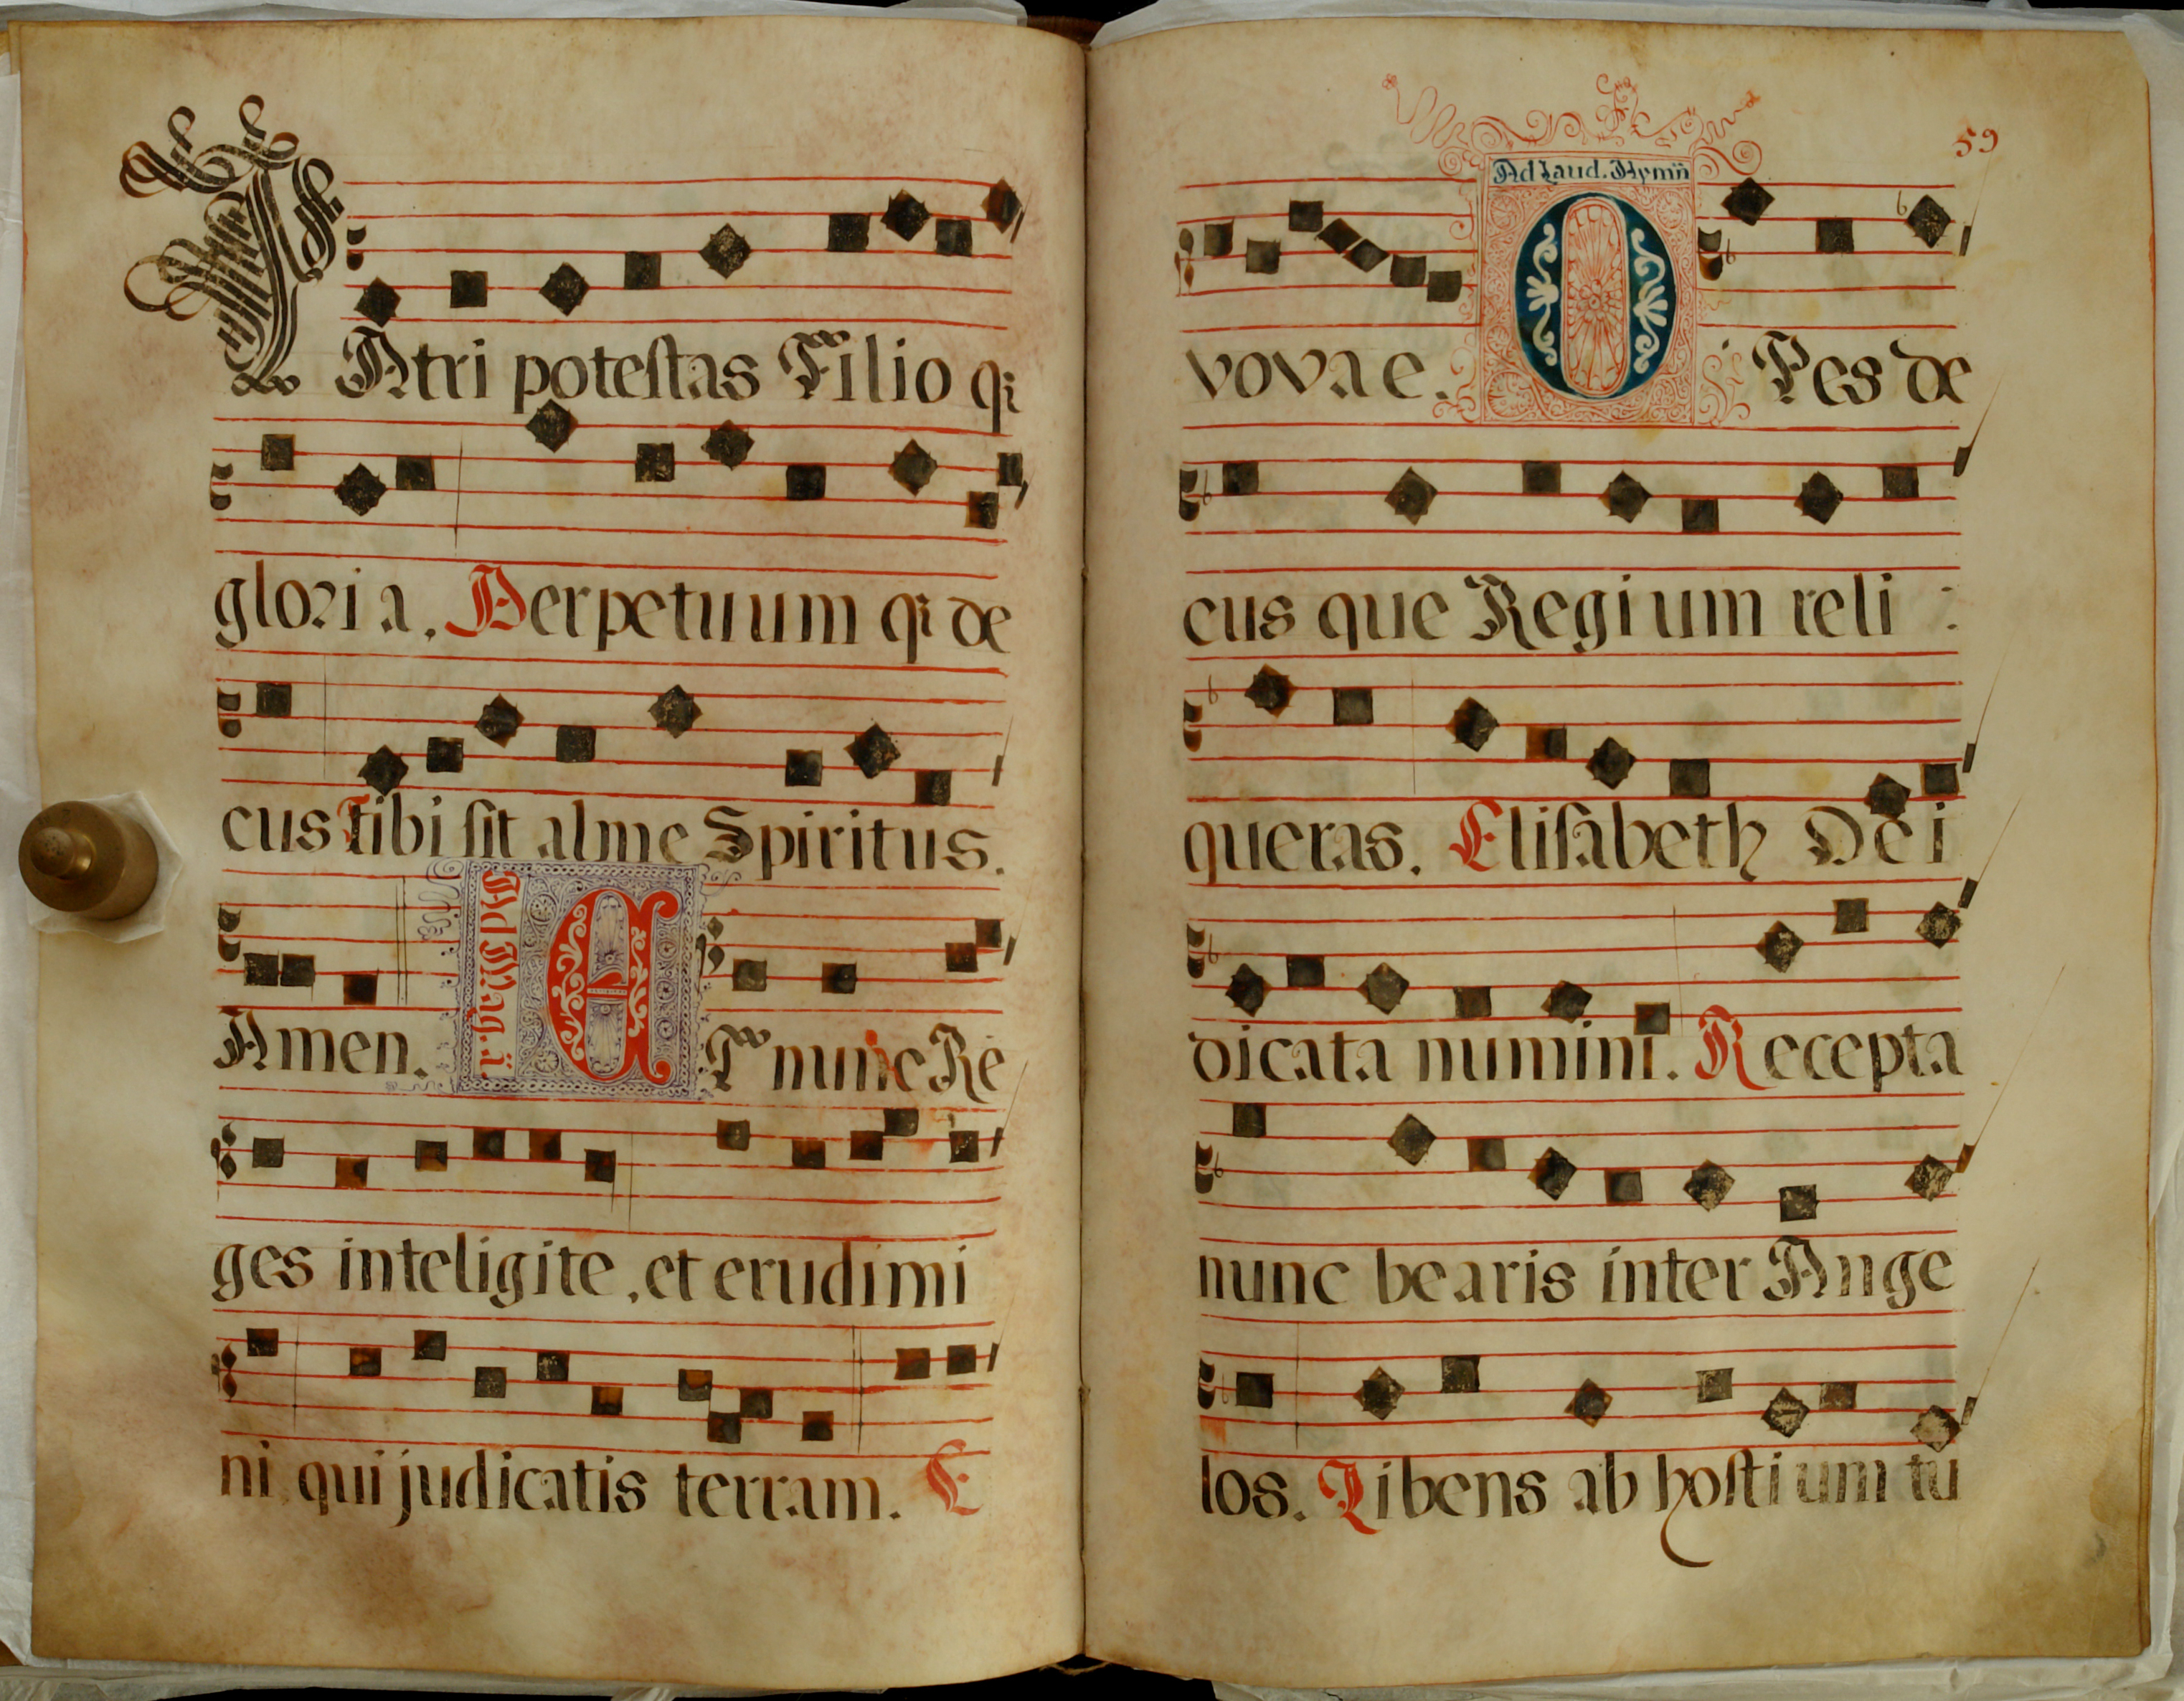 PAtri potestas Filio q;
gloria. Perpetuum q; de
cus tibi sit alme Spiritus.
Amen. Ad Mag. ā ET nunc Re
ges inteligite, et erudimi
ni qui judicatis terram. E
59
Ad Laud. Hymñ
vovae. OPes de
cus que Regium reli
queras. Elisabeth Dei
dicata numini. Recepta
nunc bearis inter Ange
los. Libens ab hostium tu